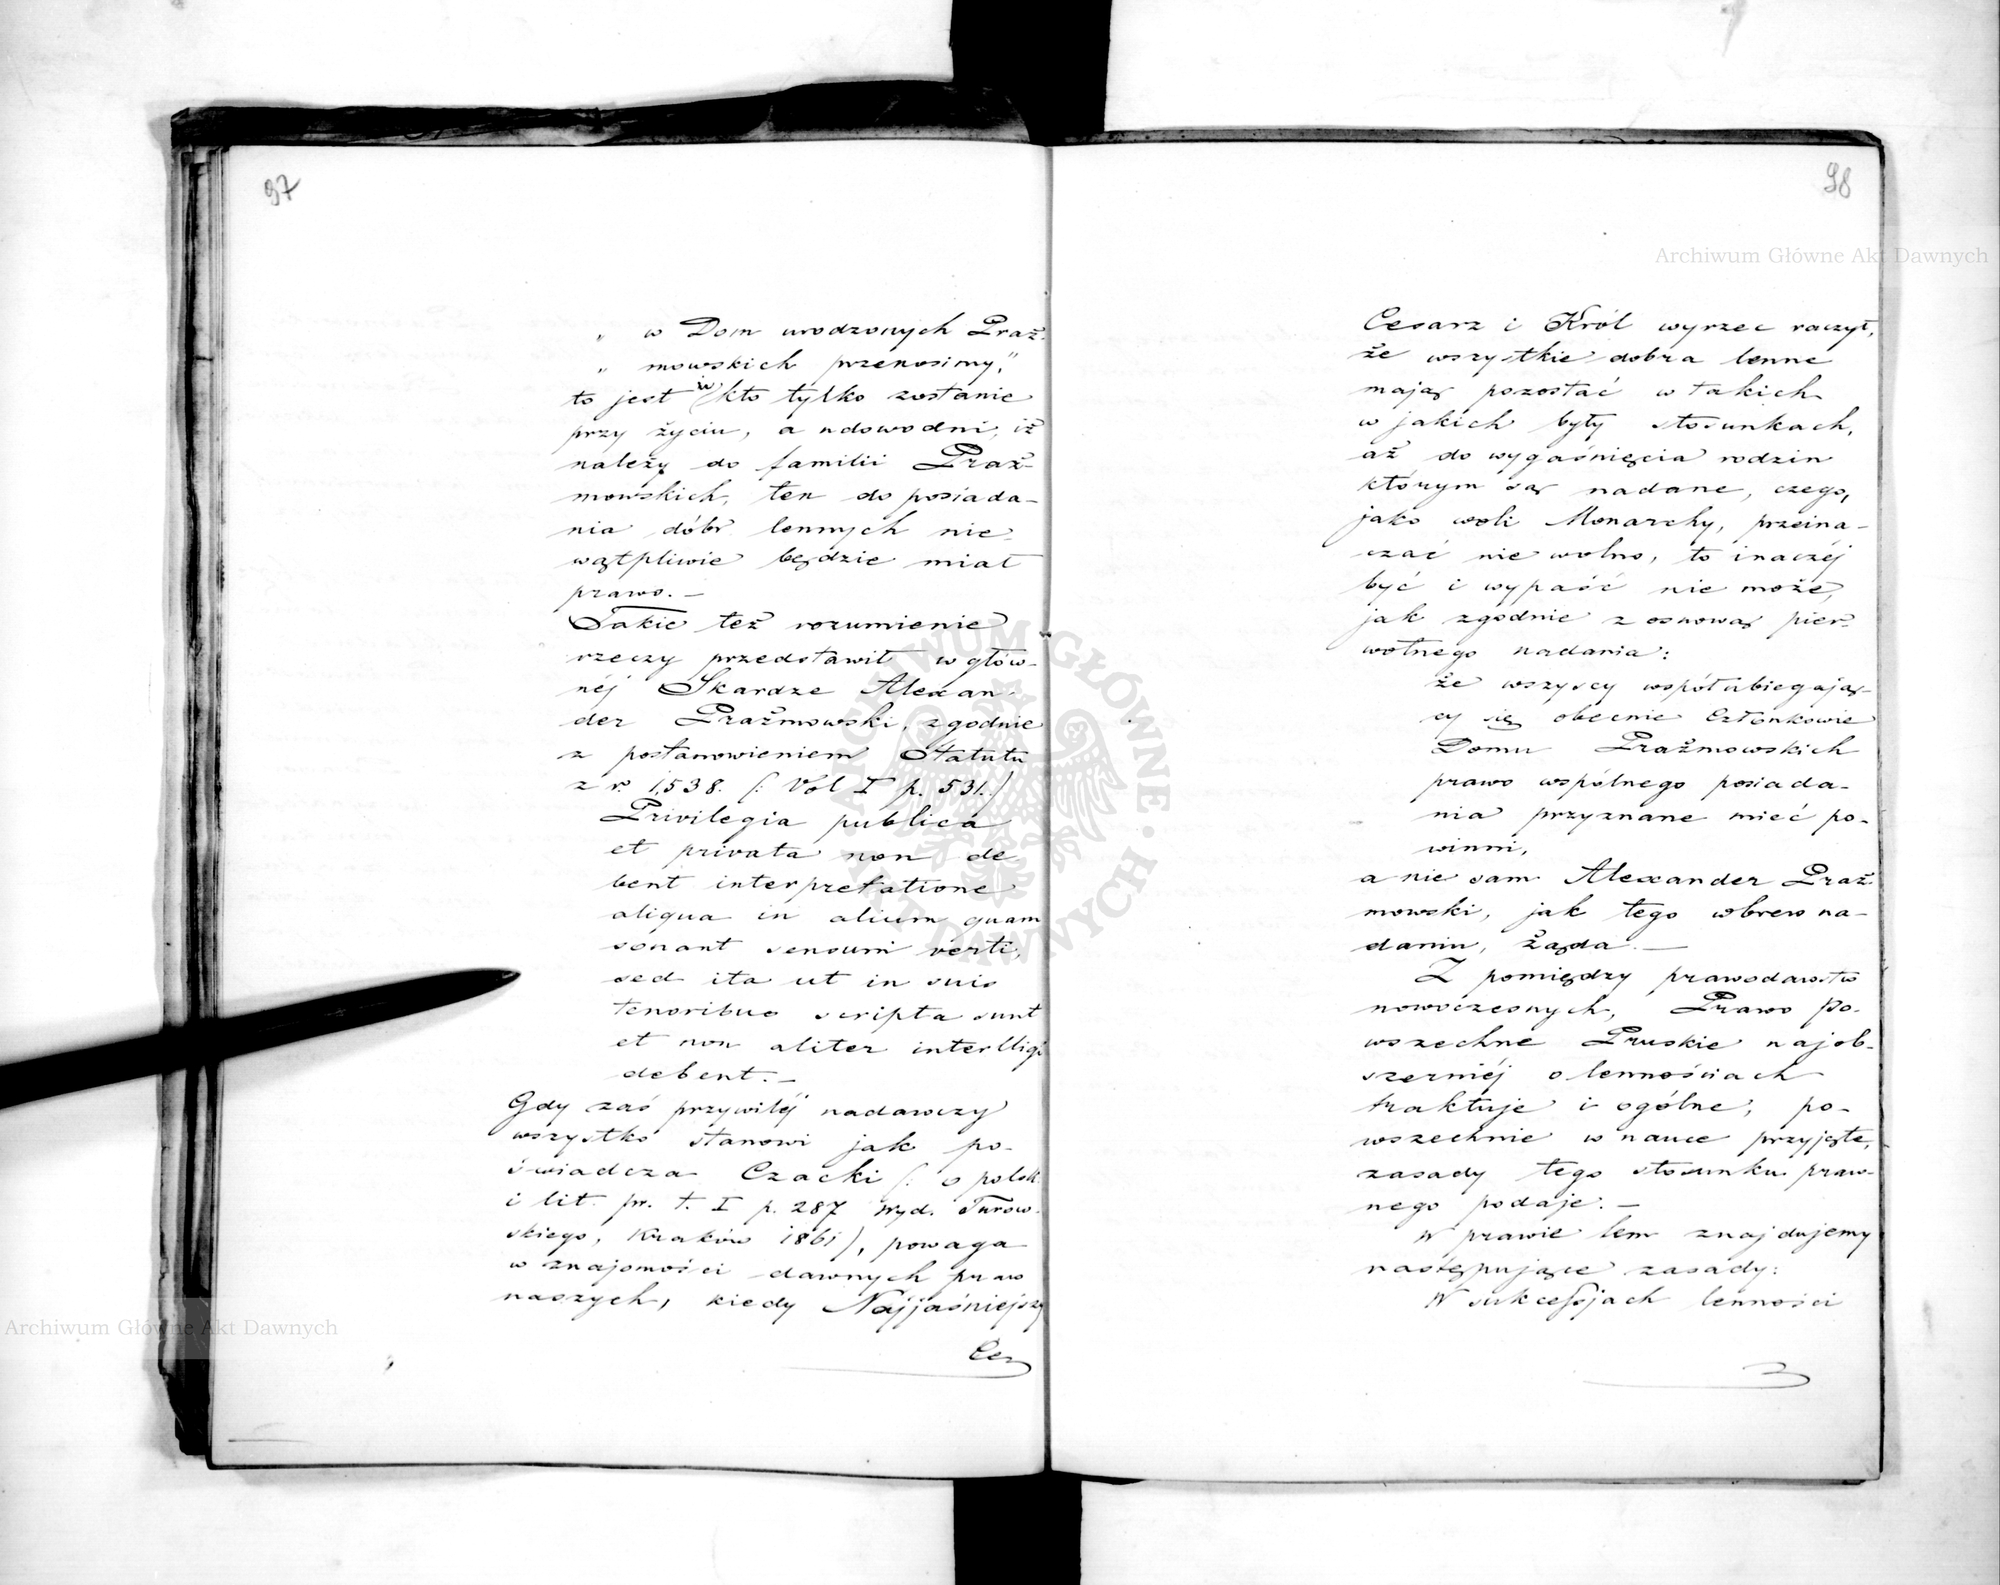 97
„ w Dom urodzonych Praż-
„ mowskich przenosimy,"
to jest iż kto tylko zostanie
przy życiu, a udowodni, iż
należy do familii Praż-
mowskich, ten do posiada-
nia dóbr lennych nie-
wątpliwie będzie miał
prawo. —
Takie też rozumienie
rzeczy przedstawił w głów-
néj Skardze Alexan-
der Prażmowski, zgodnie
z postanowieniem Statutu
z r. 1,538. (: Vol I p. 531.)
Privilegia publica
et privata non de
bent interpretatione
aliqua in alium quam
sonant sensum verti,
sed ita ut in suis
tenoribus scripta sunt
et non aliter intelligi
debent. —
Gdy zaś przywiléj nadawczy
wszystko stanowi jak po-
świadcza Czacki (: o polsk.
i lit. pr. t. I p. 287 wyd. Turow-
skiego, Kraków 1861), powaga
w znajomości dawnych praw
naszych, kiedy Najjaśniejszy
Ces
98
Cesarz i Król wyrzec raczył,
że wszystkie dobra lenne
mają pozostać w takich
w jakich były stosunkach,
aż do wygaśnięcia rodzin
którym są nadane, czego,
jako woli Monarchy, przeina-
czać nie wolno, to inaczéj
być i wypaść nie może,
jak zgodnie z osnową pier-
wotnego nadania:
że wszyscy współubiegają-
cy się obecnie Członkowie
Domu Prażmowskich
prawo wspólnego posiada-
nia przyznane mieć po-
winni,
a nie sam Alexander Praż-
mowski, jak tego wbrew na-
daniu, żąda. —
Z pomiędzy prawodawstw
nowoczesnych, Prawo Po-
wszechne Pruskie najob-
szerniéj o lennościach
traktuje i ogólne, po-
wszechnie w nauce przyjęte,
zasady tego stosunku praw-
nego podaje. —
W prawie tem znajdujemy
następujące zasady:
W sukcessjach lenności
Archiwum Główne Akt Dawnych
Archiwum Główne Akt Dawnych
ARCHIWUM GŁÓWNE · AKT DAWNYCH ·